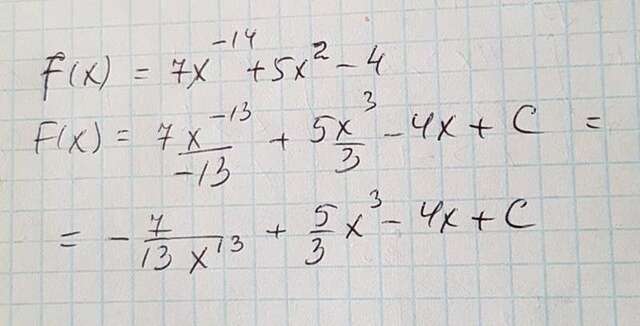 f(x) = 7x⁻¹⁴ + 5x² - 4
F(x) = 7x⁻¹³/-13 + 5x³/3 - 4x + C =
= - 7/13x¹³ + 5/3 x³ - 4x + C